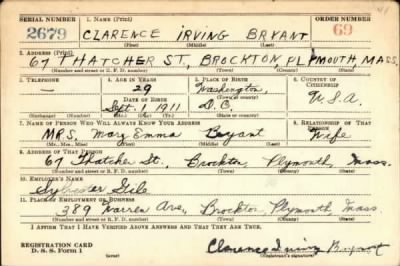 SERIAL NUMBER 1. NAME (Print) ORDER NUMBER
2679 CLARENCE IRVING BRYANT 69
(First) (Middle) (Last)
2. ADDRESS (Print)
67 THATCHER ST., BROCKTON, PLYMOUTH, MASS.
(Number and street or R. F. D. number) (Town) (County) (State)
3. TELEPHONE 4. AGE IN YEARS 5. PLACE OF BIRTH 6. COUNTRY OF CITIZENSHIP
— 29 Washington,
DATE OF BIRTH (Town or county)
Sept. 1 1911 D.C. U.S.A.
(Exchange) (No.) (Mo.) (Day) (Yr.) (State or country)
7. NAME OF PERSON WHO WILL ALWAYS KNOW YOUR ADDRESS 8. RELATIONSHIP OF THAT PERSON
MRS. Mary Emma Bryant Wife
(Mr., Mrs., Miss) (First) (Middle) (Last)
9. ADDRESS OF THAT PERSON
67 Thatcher St., Brockton, Plymouth, Mass.
(Number and street or R. F. D. number) (Town) (County) (State)
10. EMPLOYER'S NAME
Sylvester
11. PLACE OF EMPLOYMENT OR BUSINESS
389 Warren Ave., Brockton, Plymouth, Mass
(Number and street or R. F. D. number) (Town) (County) (State)
I AFFIRM THAT I HAVE VERIFIED ABOVE ANSWERS AND THAT THEY ARE TRUE.
REGISTRATION CARD
D. S. S. Form 1 Clarence Irving Bryant
(Registrant's signature)